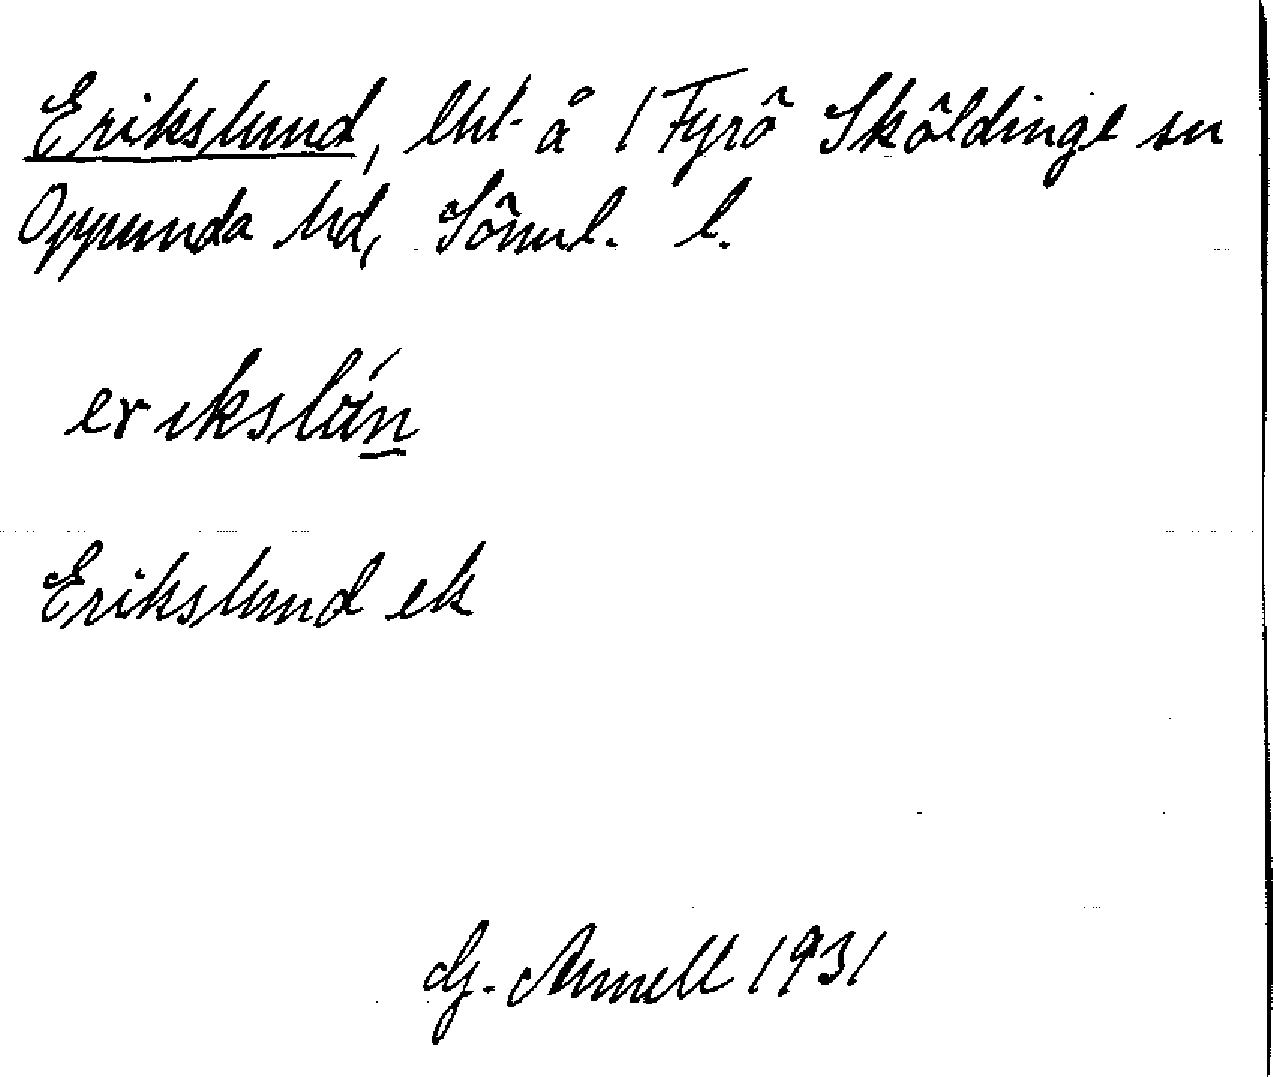 Erikslund, lht å 1 Fyrö Sköldinge sn
Oppunda hd, Söml. l.
erikslón
Erikslund ek
G. Annell 1931